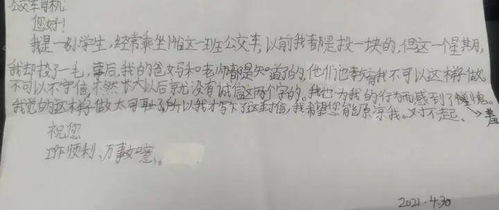 公交车司机
您好!
我是一名学生,经常乘坐146这一班公交车,以前我都是投一块的,但这一个星期,
我却投了一毛,事后,我的爸妈和老师都是知道了的,他们也教育我不可以这样做,
不可以不守信,不然长大以后就没有诚信这两个字的。我也为我的行为而感到了
我觉的这样做太可耻了所以我才写下了这封信,我希望您能原谅我。对不起。 羞
祝您
工作顺利、万事如意。
2021.4.30